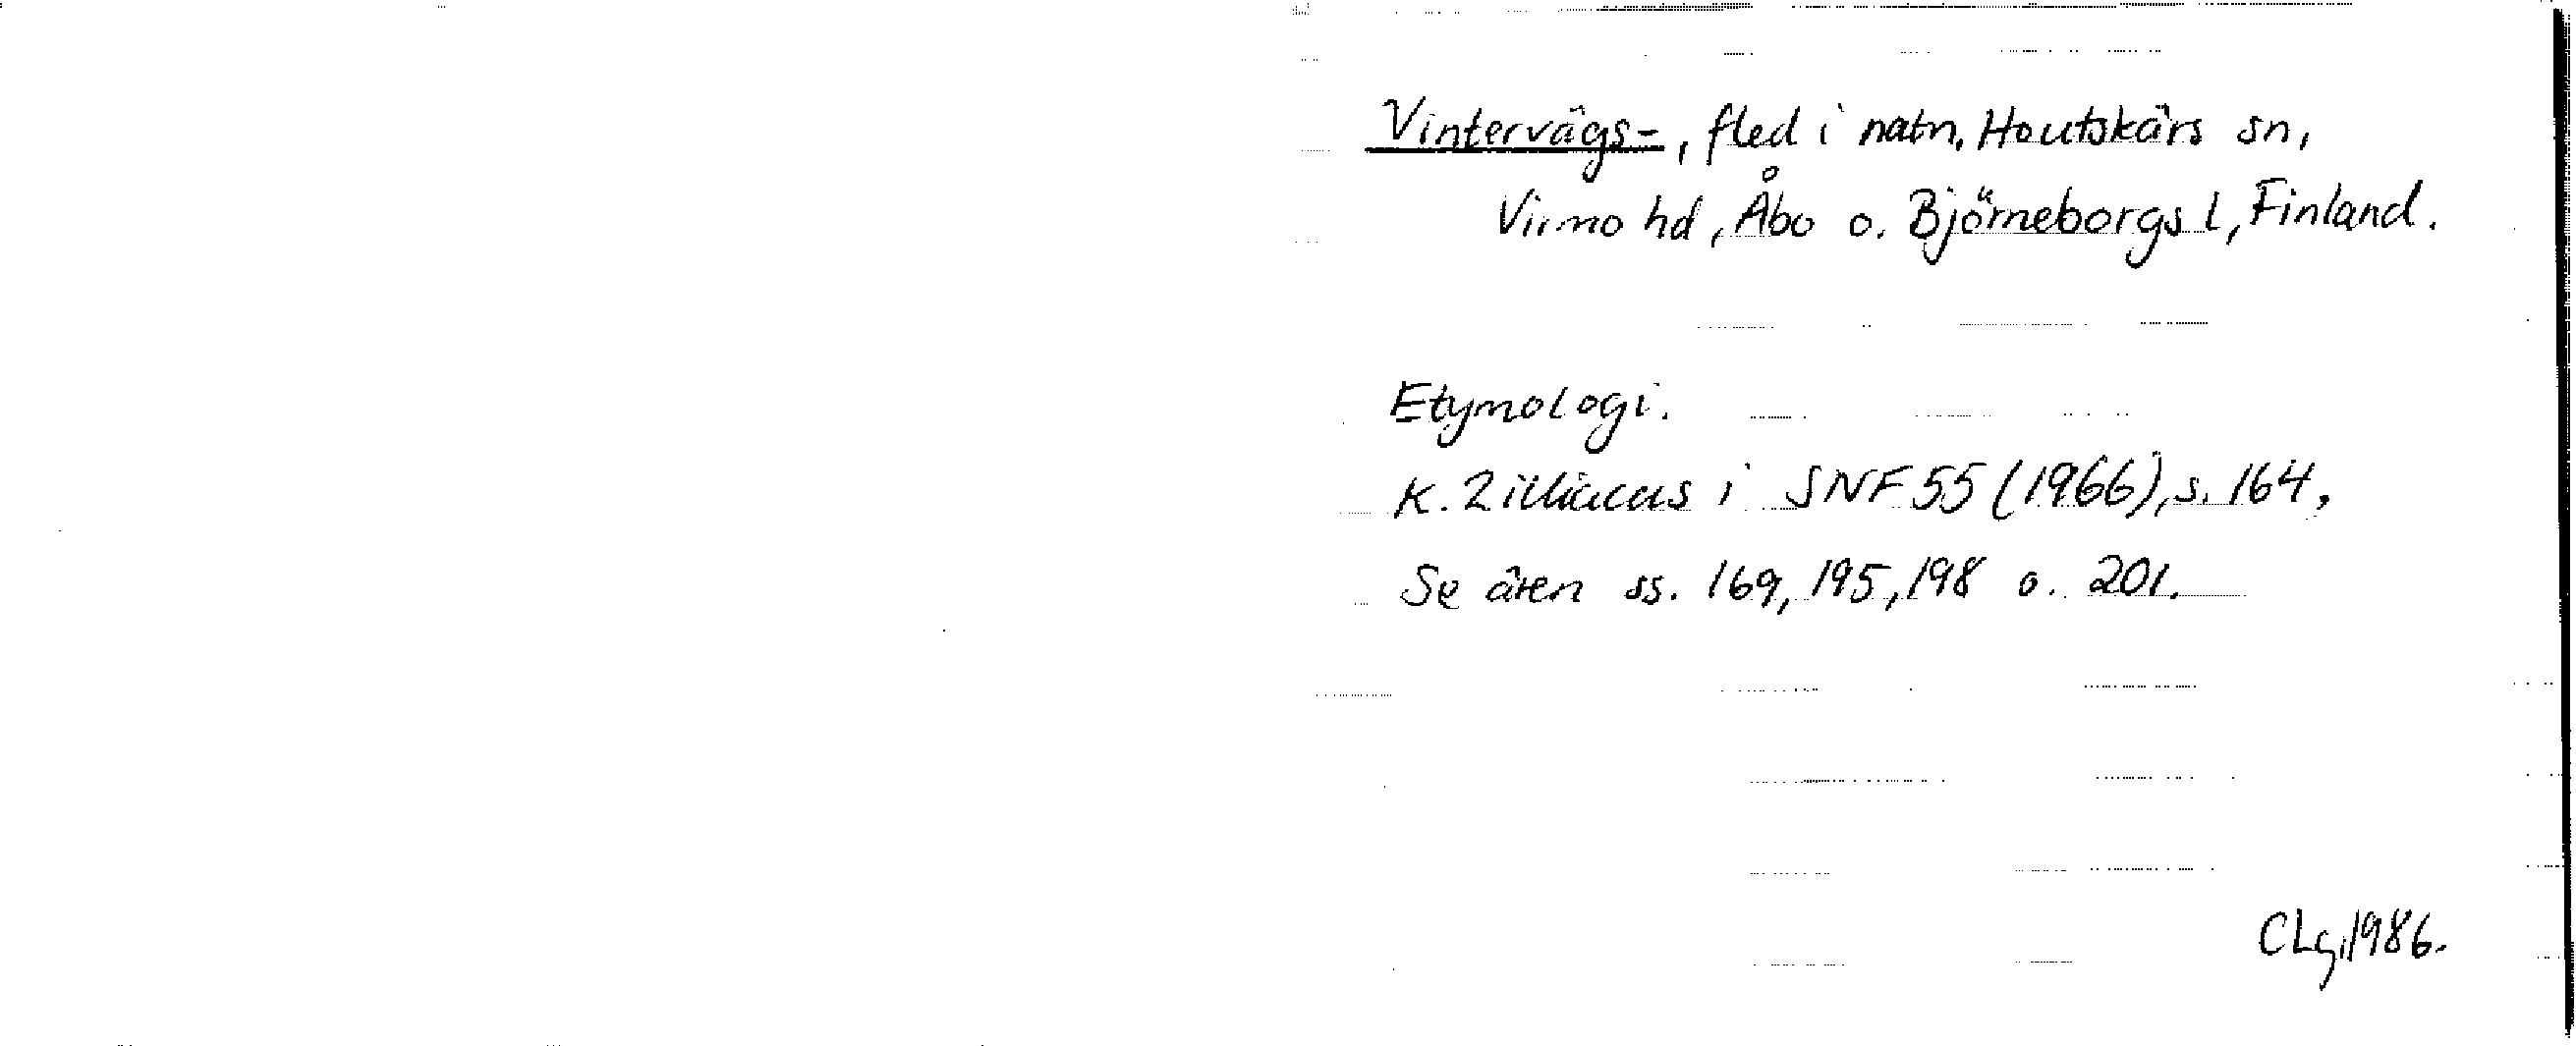 Vintervägs-, fled i natn, Houtskärs sn,
Virmo hd, Åbo o. Björneborgs l, Finland.
Etymologi.
K. Zilliacus i SNF 55 (1966), s. 164,
Se även ss. 169, 195, 198 o. 201.
CLg, 1986.